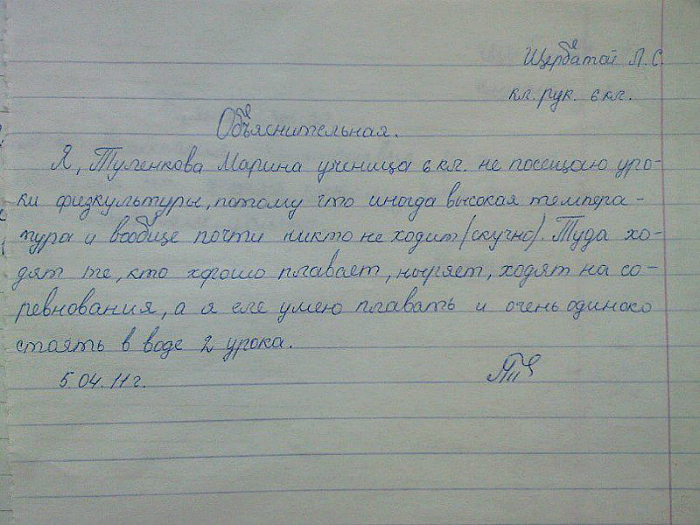 Щербатой Л.С.
кл. рук. 6 кл.
Объяснительная.
Я, Туленкова Марина ученица 6 кл. не посещаю уро-
ки физкультуры, потому что иногда высокая темпера-
тура и вообще почти никто не ходит (скучно). Туда хо-
дят те, кто хорошо плавает, ныряет, ходят на со-
ревнования, а я еле умею плавать и очень одиноко
стоять в воде 2 урока.
5.04.11 г.